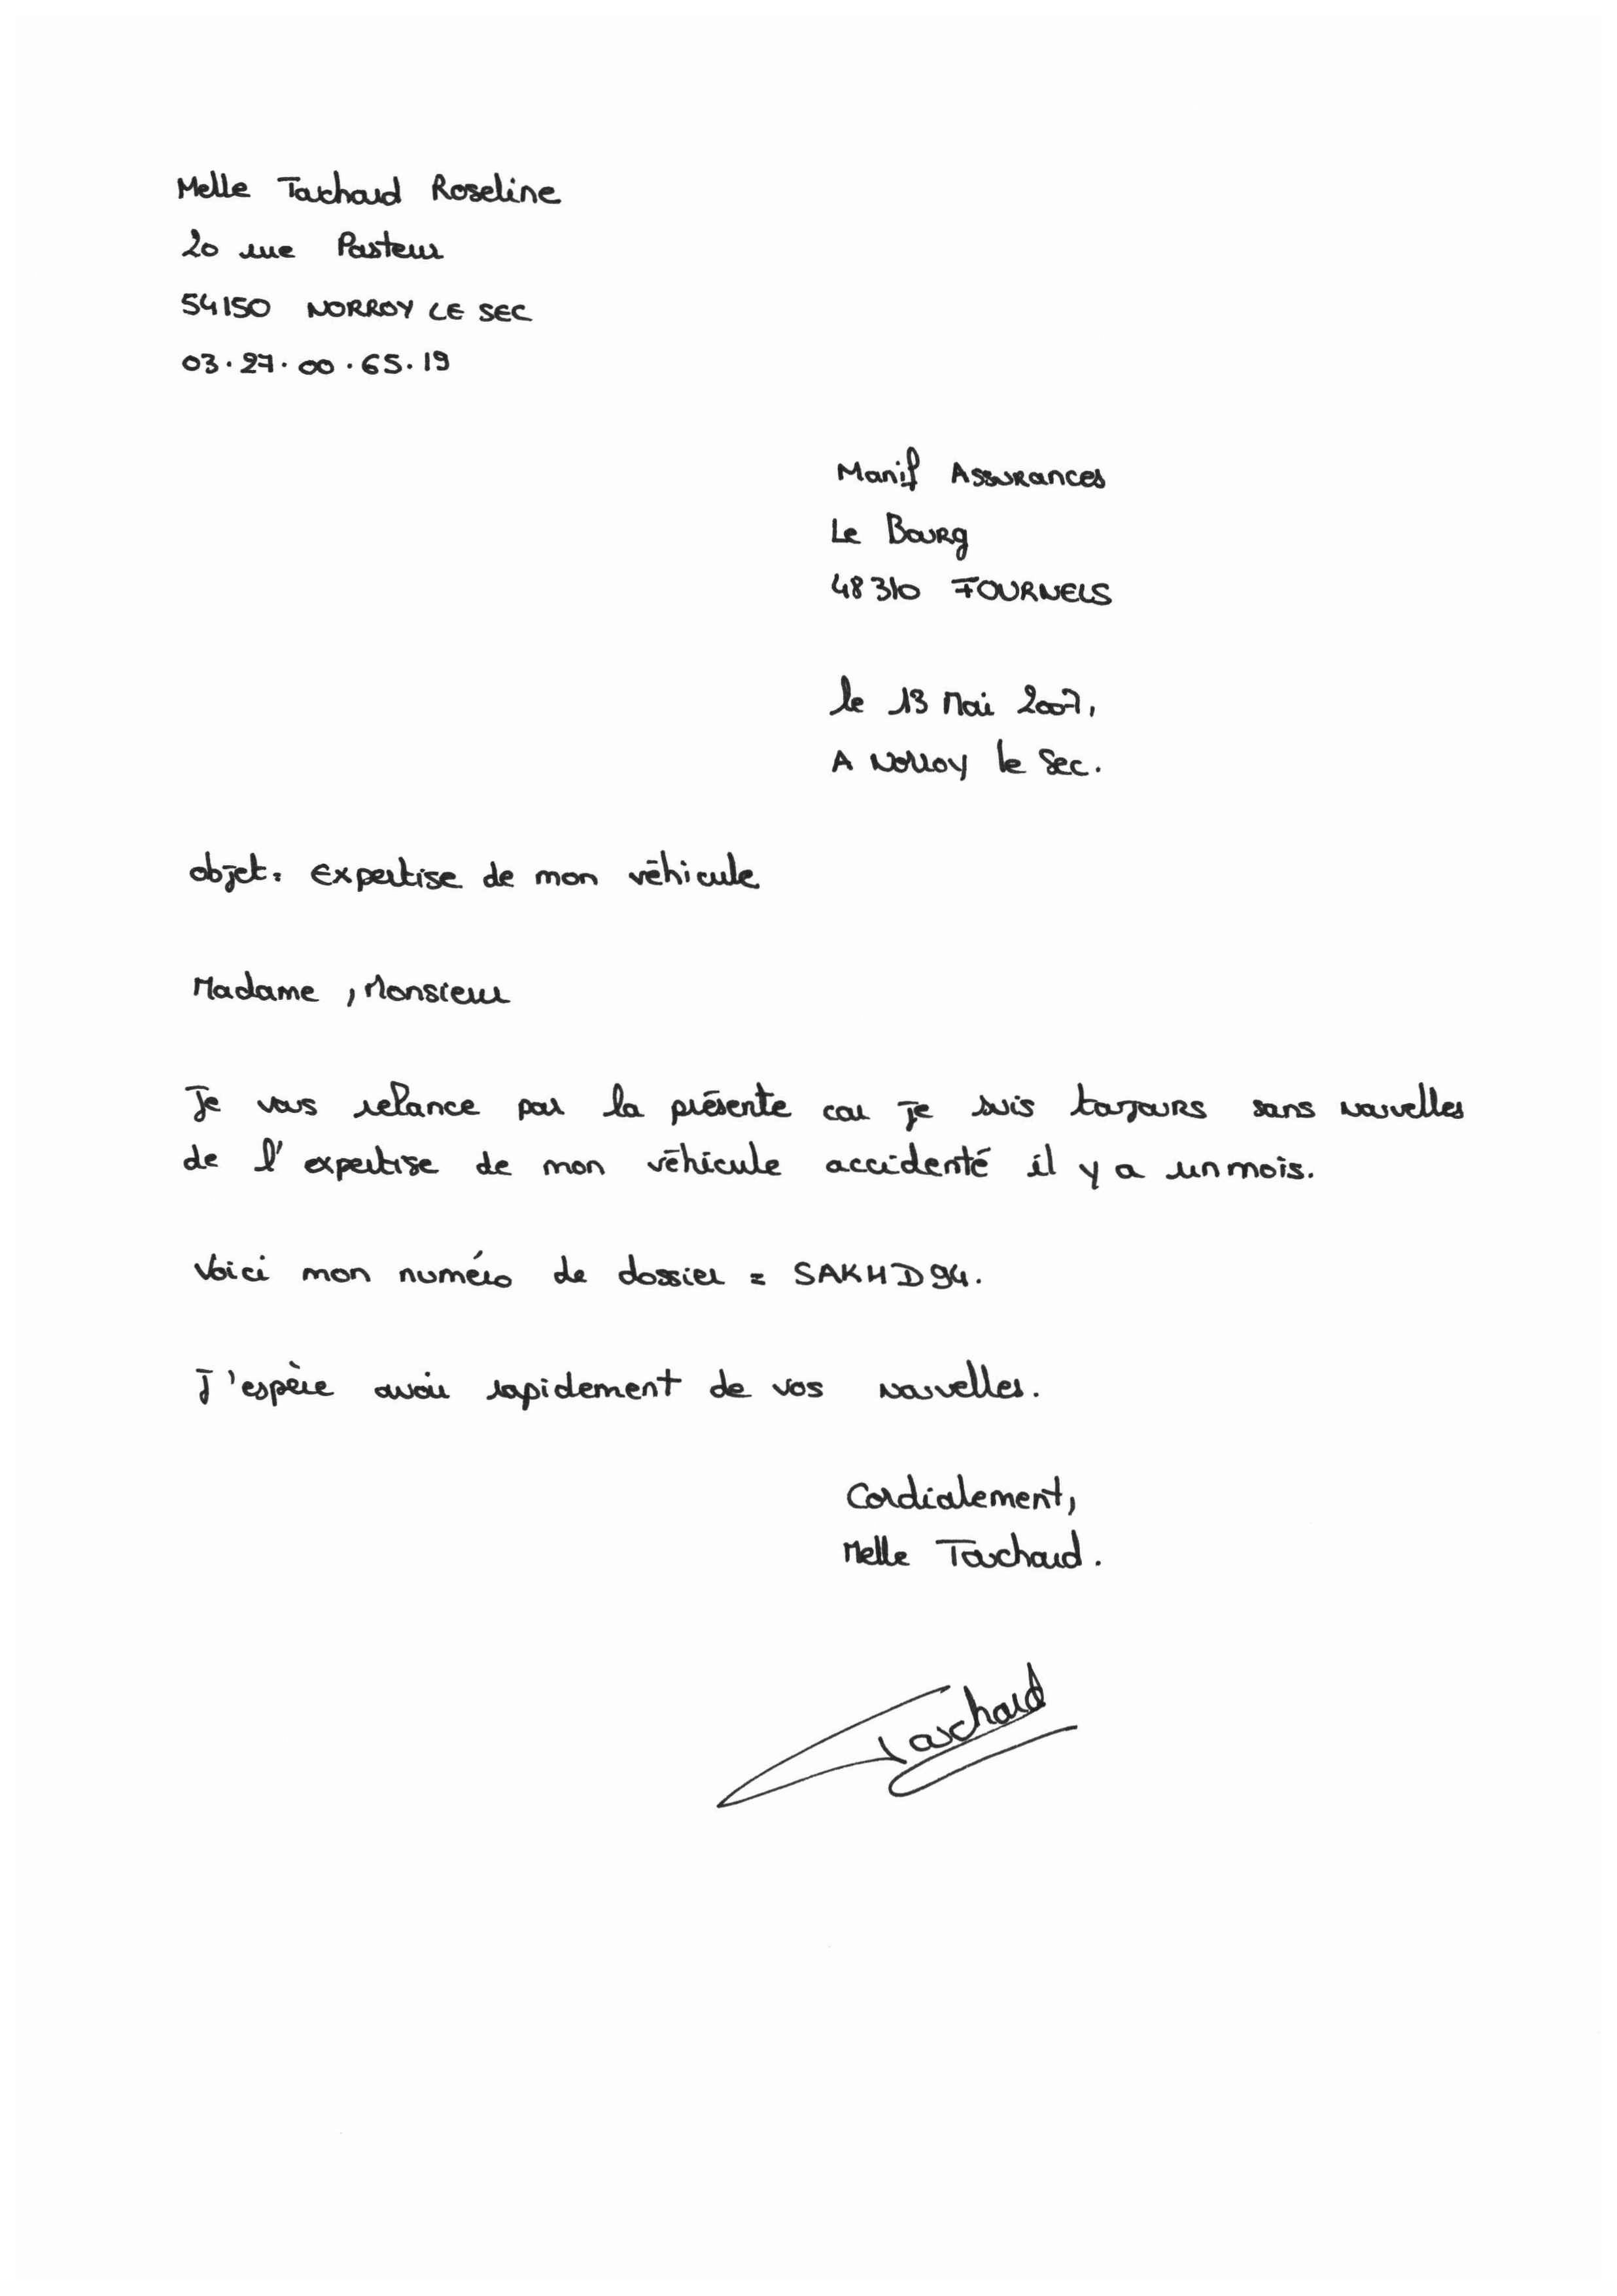 Melle Tachaud Roseline
20 rue Pasteur
54150 NORROY LE SEC
03.27.00.65.19
Manif Assurances
Le Bourg
48310 FOURNELS
le 13 Mai 2007,
A Norroy le Sec.
objet: Expertise de mon véhicule
Madame, Monsieur
Je vous relance par la présente car je suis toujours sans nouvelles
de l'expertise de mon véhicule accidenté il y a un mois.
Voici mon numéro de dossier = SAKHD94.
J'espère avoir rapidement de vos nouvelles.
Cordialement,
Melle Tachaud.
Tachaud